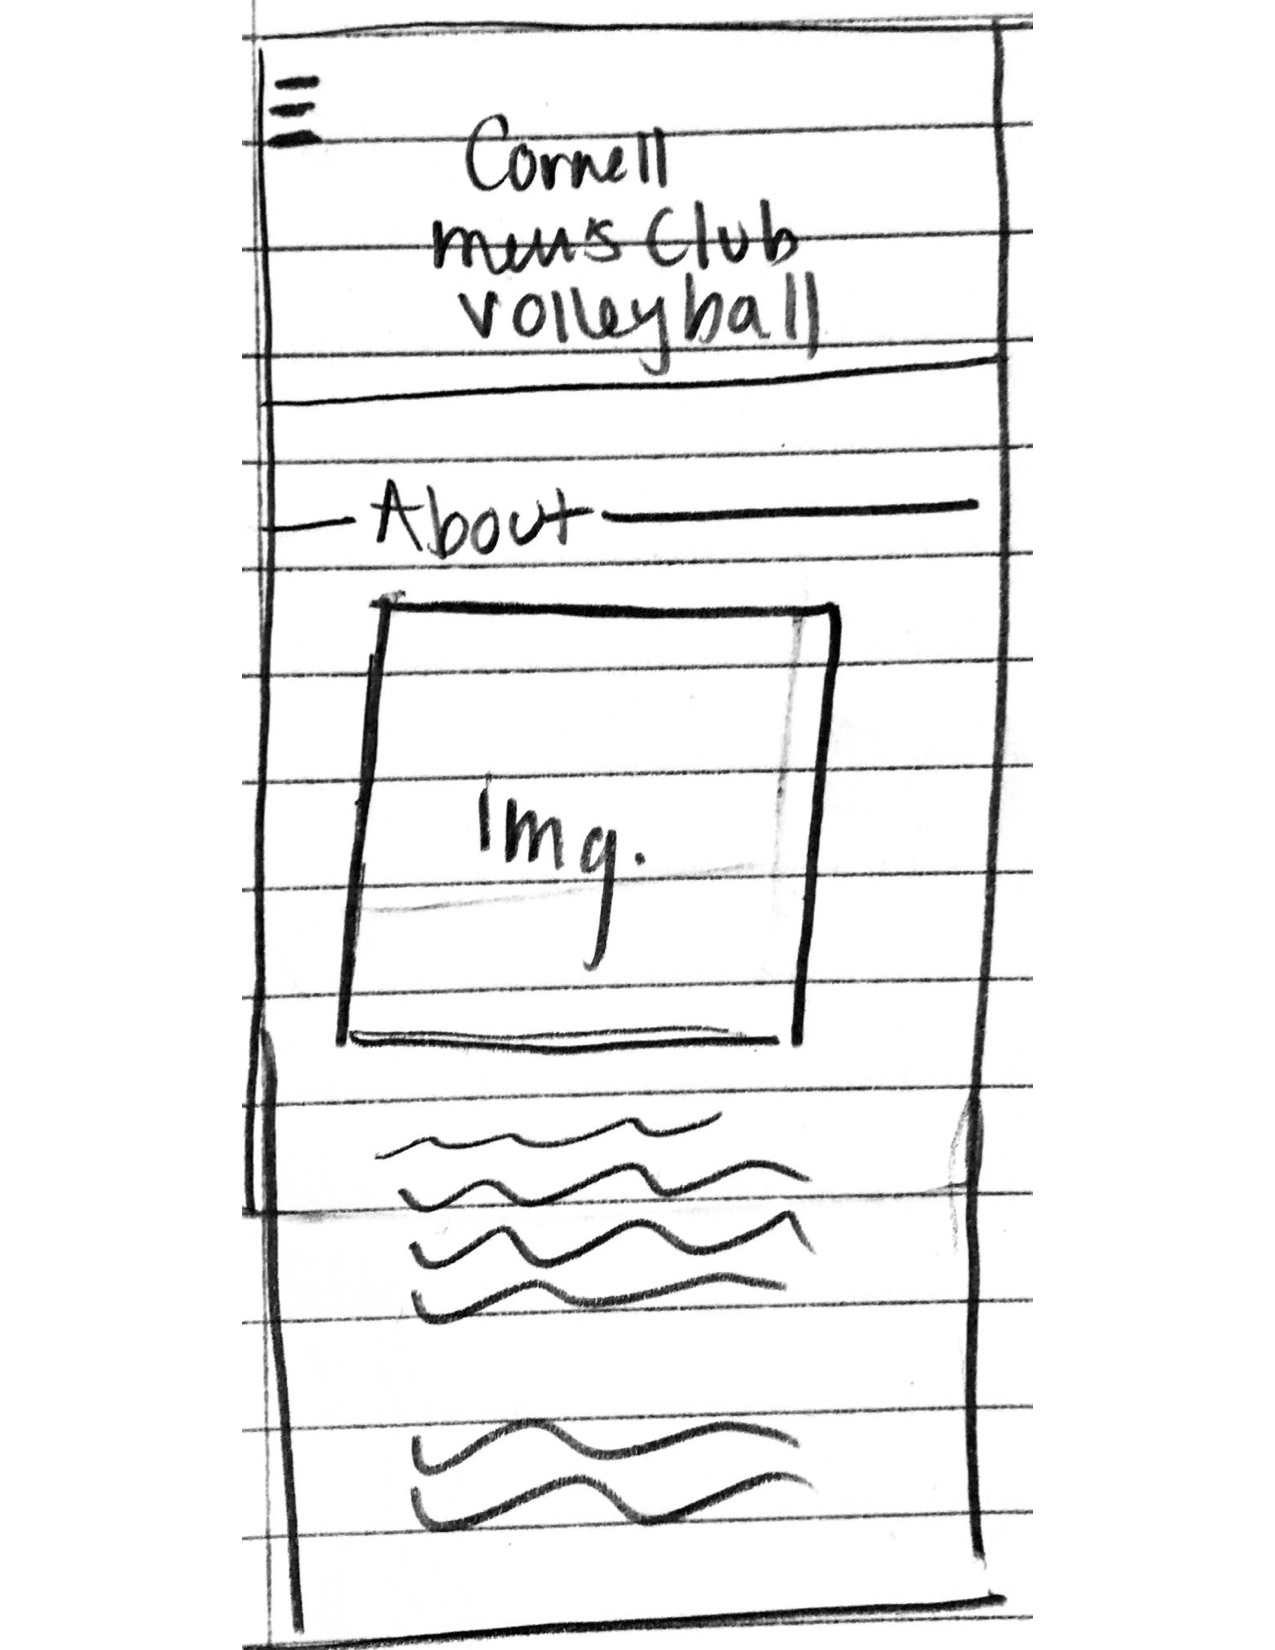 Cornell
men's Club
volleyball
About
img.